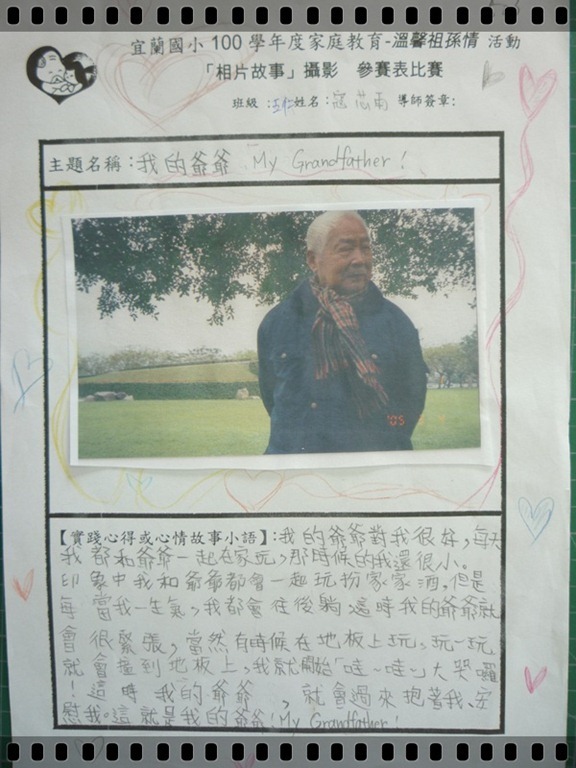 宜蘭國小 100 學年度家庭教育-溫馨祖孫情 活動
「相片故事」攝影 參賽表比賽
班級：五仁姓名：寇芯雨 導師簽章：
主題名稱：我的爺爺 My Grandfather！
'05
【實踐心得或心情故事小語】：我的爺爺對我很好，每天
我都和爺爺一起在家玩，那時候的我還很小。
印象中我和爺爺都會一起玩扮家家酒，但是
每當我一生氣，我都會往後躺，這時我的爺爺就
會很緊張，當然有時候在地板上玩，玩一玩
就會撞到地板上，我就開始「哇~哇~」大哭囉
！這時我的爺爺，就會過來抱著我、安
慰我。這就是我的爺爺！My Grandfather！